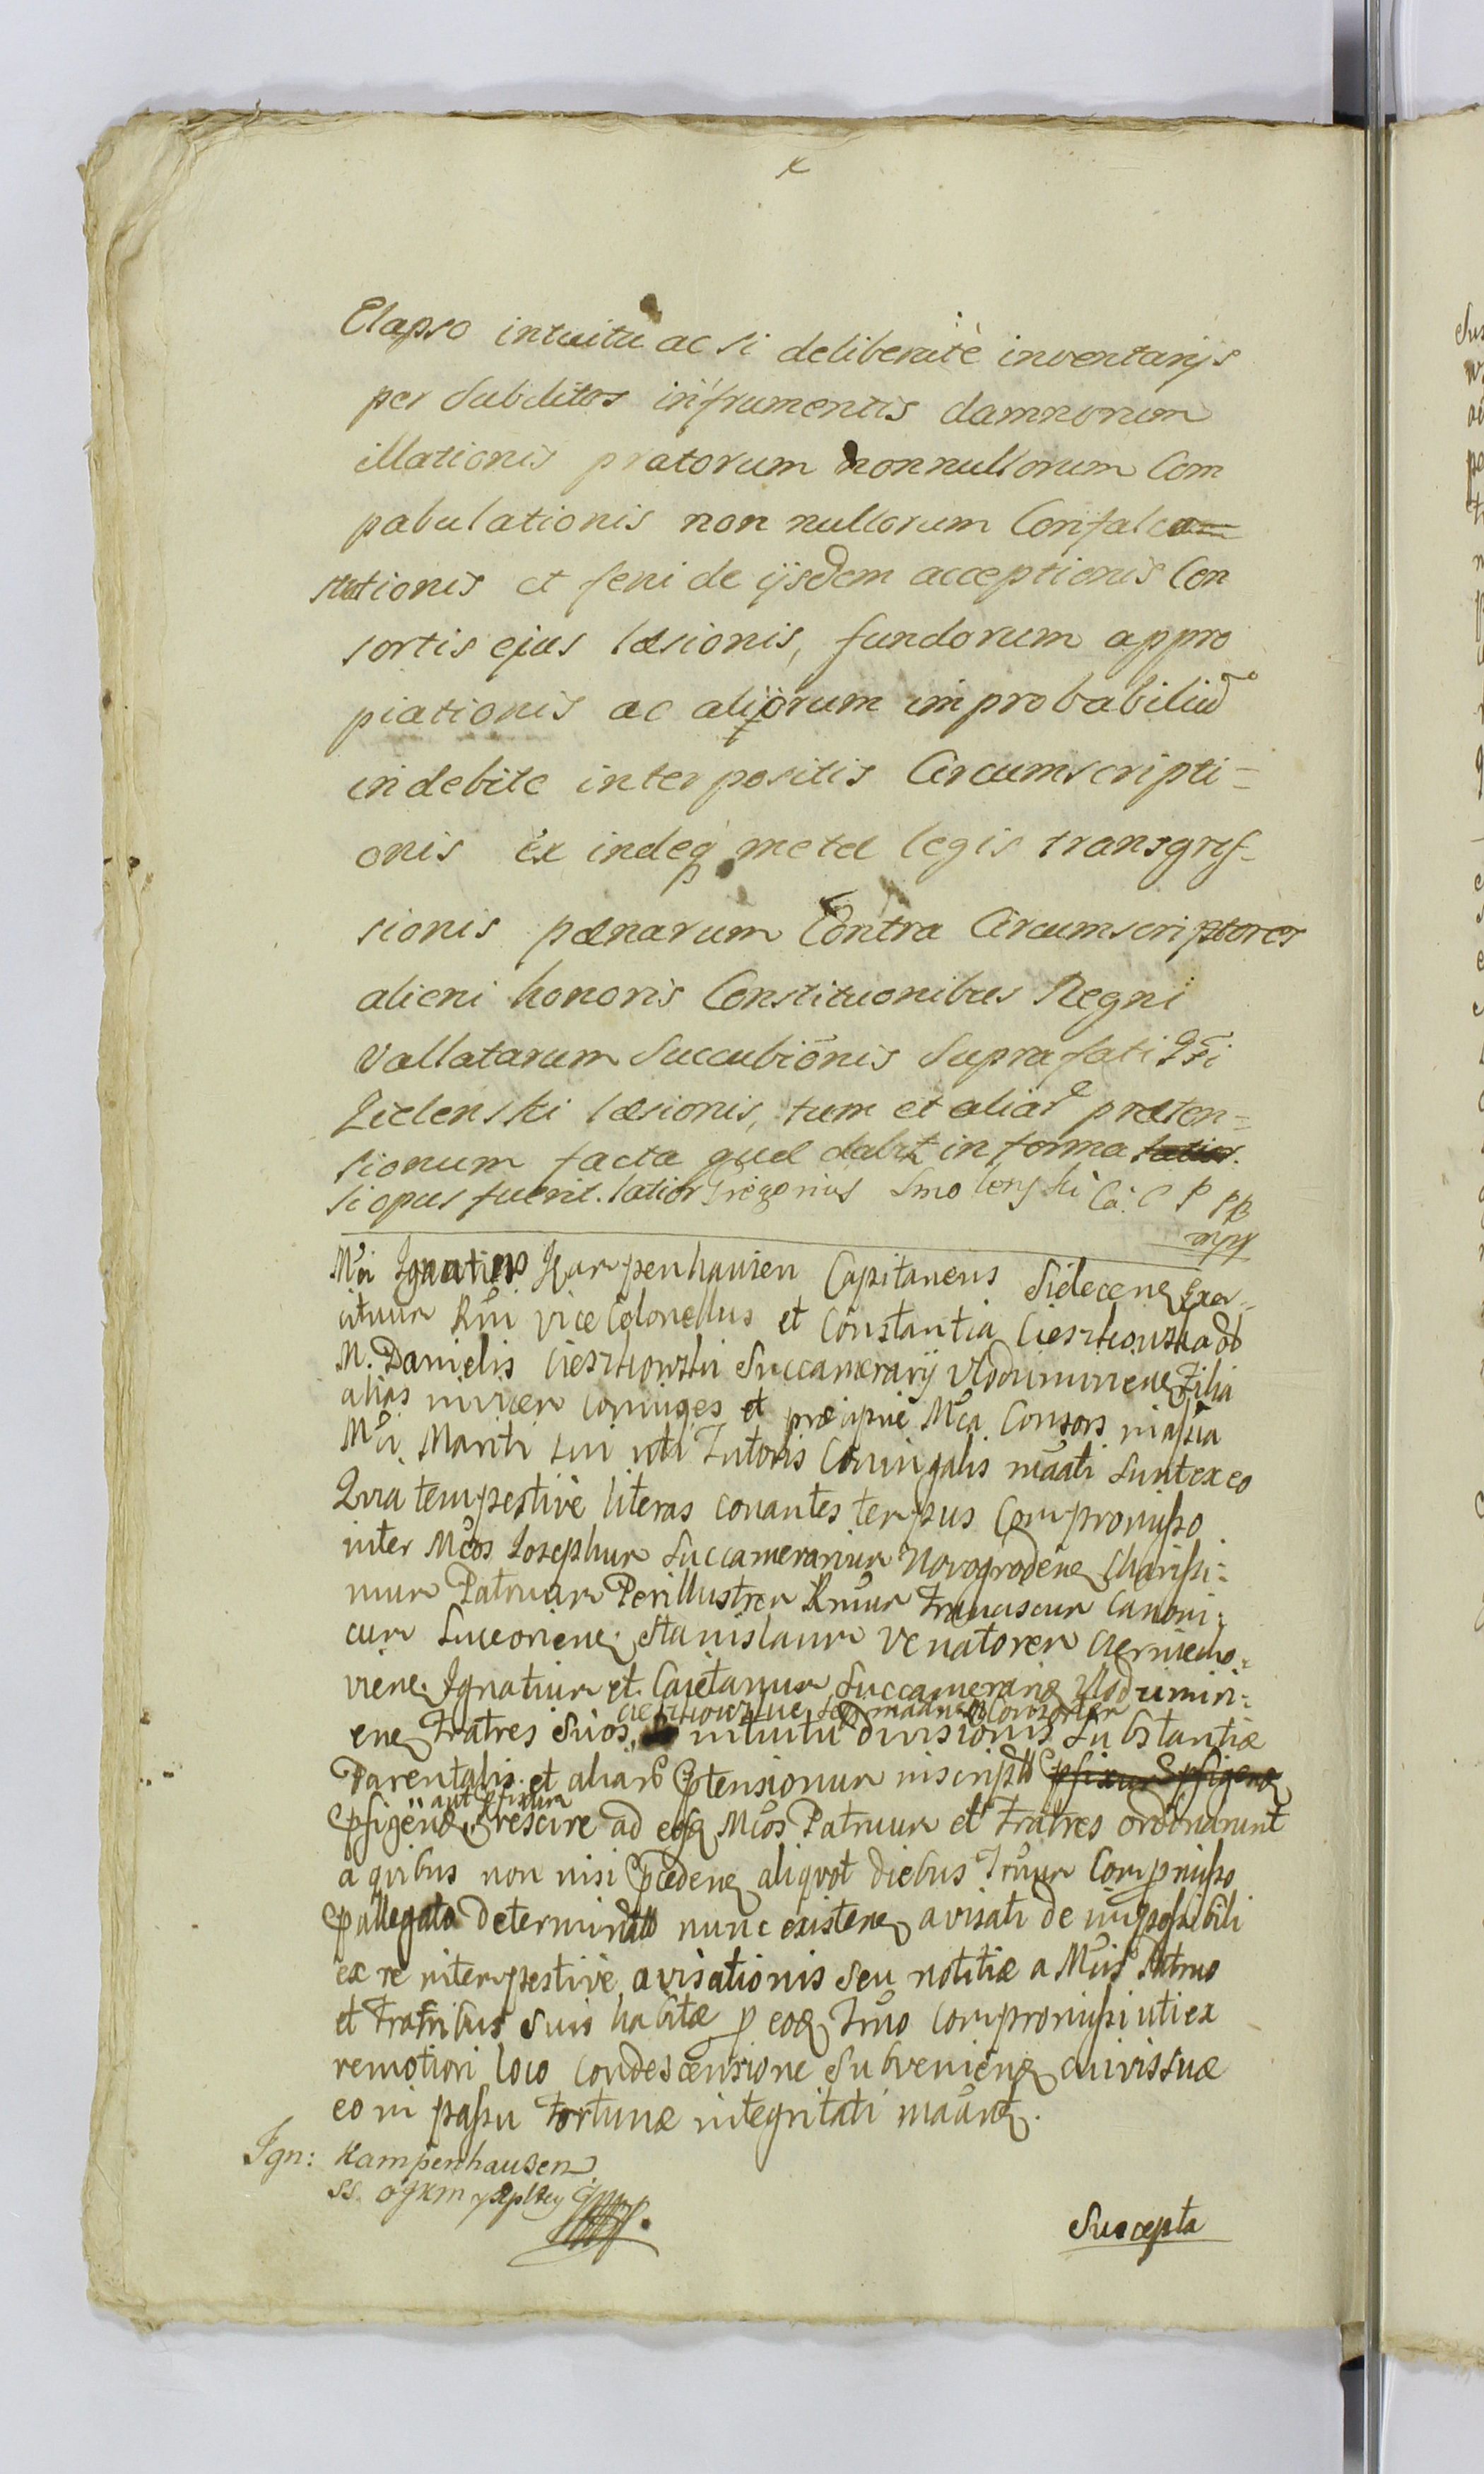 Elapso intuitu ac si deliberatè inventarijs
per Subditos in frumentis damnorum
illationis pratorum nonnullorum Com
pabulationis non nullorum Confalca
tionis et feni de ijsdem acceptionis Con
sortis ejus læsionis, fundorum appro
piationis ac aliorum improbabiliũ
indebite interpositis Circumscripti=
onis ex indeq metæ legis transgres-
sionis pænarum Contra Circumscriptores
alieni honoris Constitutionibus Regni
Vallatarum Succubiõnis Suprafati
Zielenski læsionis, tum et aliar præten=
sionum facta quæ dabit in forma
si opus fuerit. latior Gregorius Smolenski
Ignatius Kampenhausen Capitaneus Sidecenę Exer=
cituum vice Colonellus et Constantia Cieszkowska
M. Danielis Cieszkowski Succamerarij Vlodimirienę Filia
alias invicem coniuges et præcipuè Mca Consors
Mci Mariti sui uti Tutoris Coniugalis maãti Sunt ex eo
Quia tempestivè literas conantes Compromisso
inter Mcos Iosephum Succamerarium Novogrodenę Charissi=
mum Patruum Perillustrem Rmum Franciscum Canoni=
cum Luceorienę. Stanislaum Venatorem Czerniecho=
vienę. Ignatium et Caietanum Succamerarię Vlodzimiri=
Cieszkowskie
enę Fratres Suos intuitu divisionis Substantiæ
Parentalis et aliar ptensionum
aut
rescire ad eosq Mcos Patruum et Fratres ordinarunt
a quibus non nisi pcedenę aliquot diebus
pallegata nunc existenę avisati de impossibili
ex re intempestivè avisationis Seu notitiæ a Mcis Patruo
et Fratribus Suis habitæ p eoq Trño Compromissi uti ex
remotiori loco condescensione Subvenienę
eo in passu Fortunæ integritati maãnt.
Ign: Kampenhausen
Suscepta